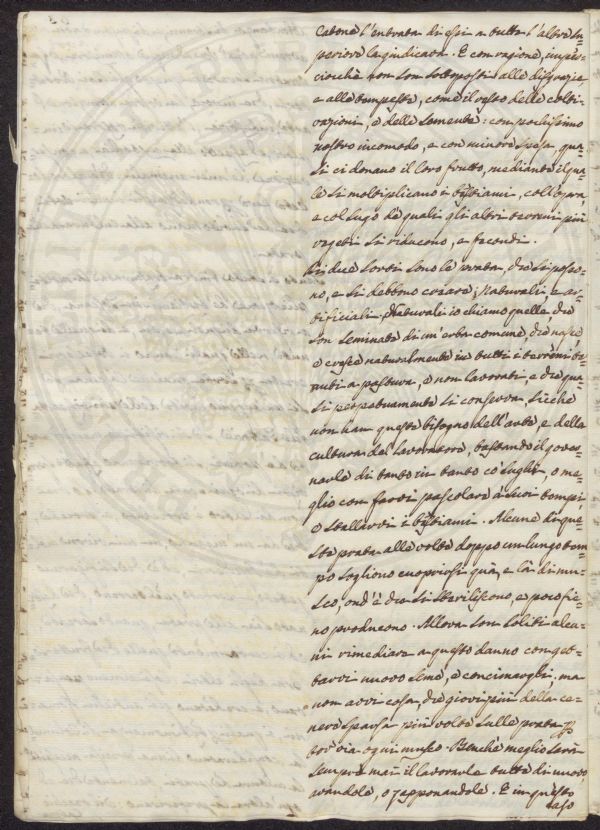 Catone l'entrata di essi a tutte l'altre su=
periore la giudicava. E con ragione, imper=
ciocchè non son sottoposti alle disgrazie
e alle tempeste, come il resto delle colti=
vazioni, e delle semente: con pochissimo
nostro incomodo, e con minore spesa, qua=
si ci donano il loro frutto, mediante il qua=
le si moltiplicano i bestiami, coll'opra,
e col sugo de' quali gli altri terreni più
vegeti si riducono, e fecondi.
Di due sorti sono le prata, che si posso=
no, e si debbono creare; Naturali, e ar=
tificiali. Naturali io chiamo quelle che
son seminate di un'erba comune, che nasce
e cresce naturalmente in tutti i terreni te=
nuti a pastura, e non lavorati, e che qua=
si perpetuamente si conserva. Sicchè
non han queste bisogno dell'arte, e della
cultura del lavoratore, bastando il gover=
narle di tanto in tanto co' sughi, o me=
glio con farvi pascolare a' suoi tempi,
o stallarvi i bestiami. Alcune di que=
ste prata alle volte doppo un lungo tem=
po sogliono cuoprirsi quà, e là di mu=
sco, ond'è che si steriliscono, e poco fie=
no producono. Allora son soliti alcu=
ni rimediare a questo danno con get=
tarvi nuovo seme, e concimargli, ma
non avvi cosa, che giovi più della ce=
nere sparsa più volte sulle prata p
tor via ogni musco. Benchè meglio sarà
sempre mai il lavorarle tutte di nuovo
arandole, o zapponandole. E in questo
caso